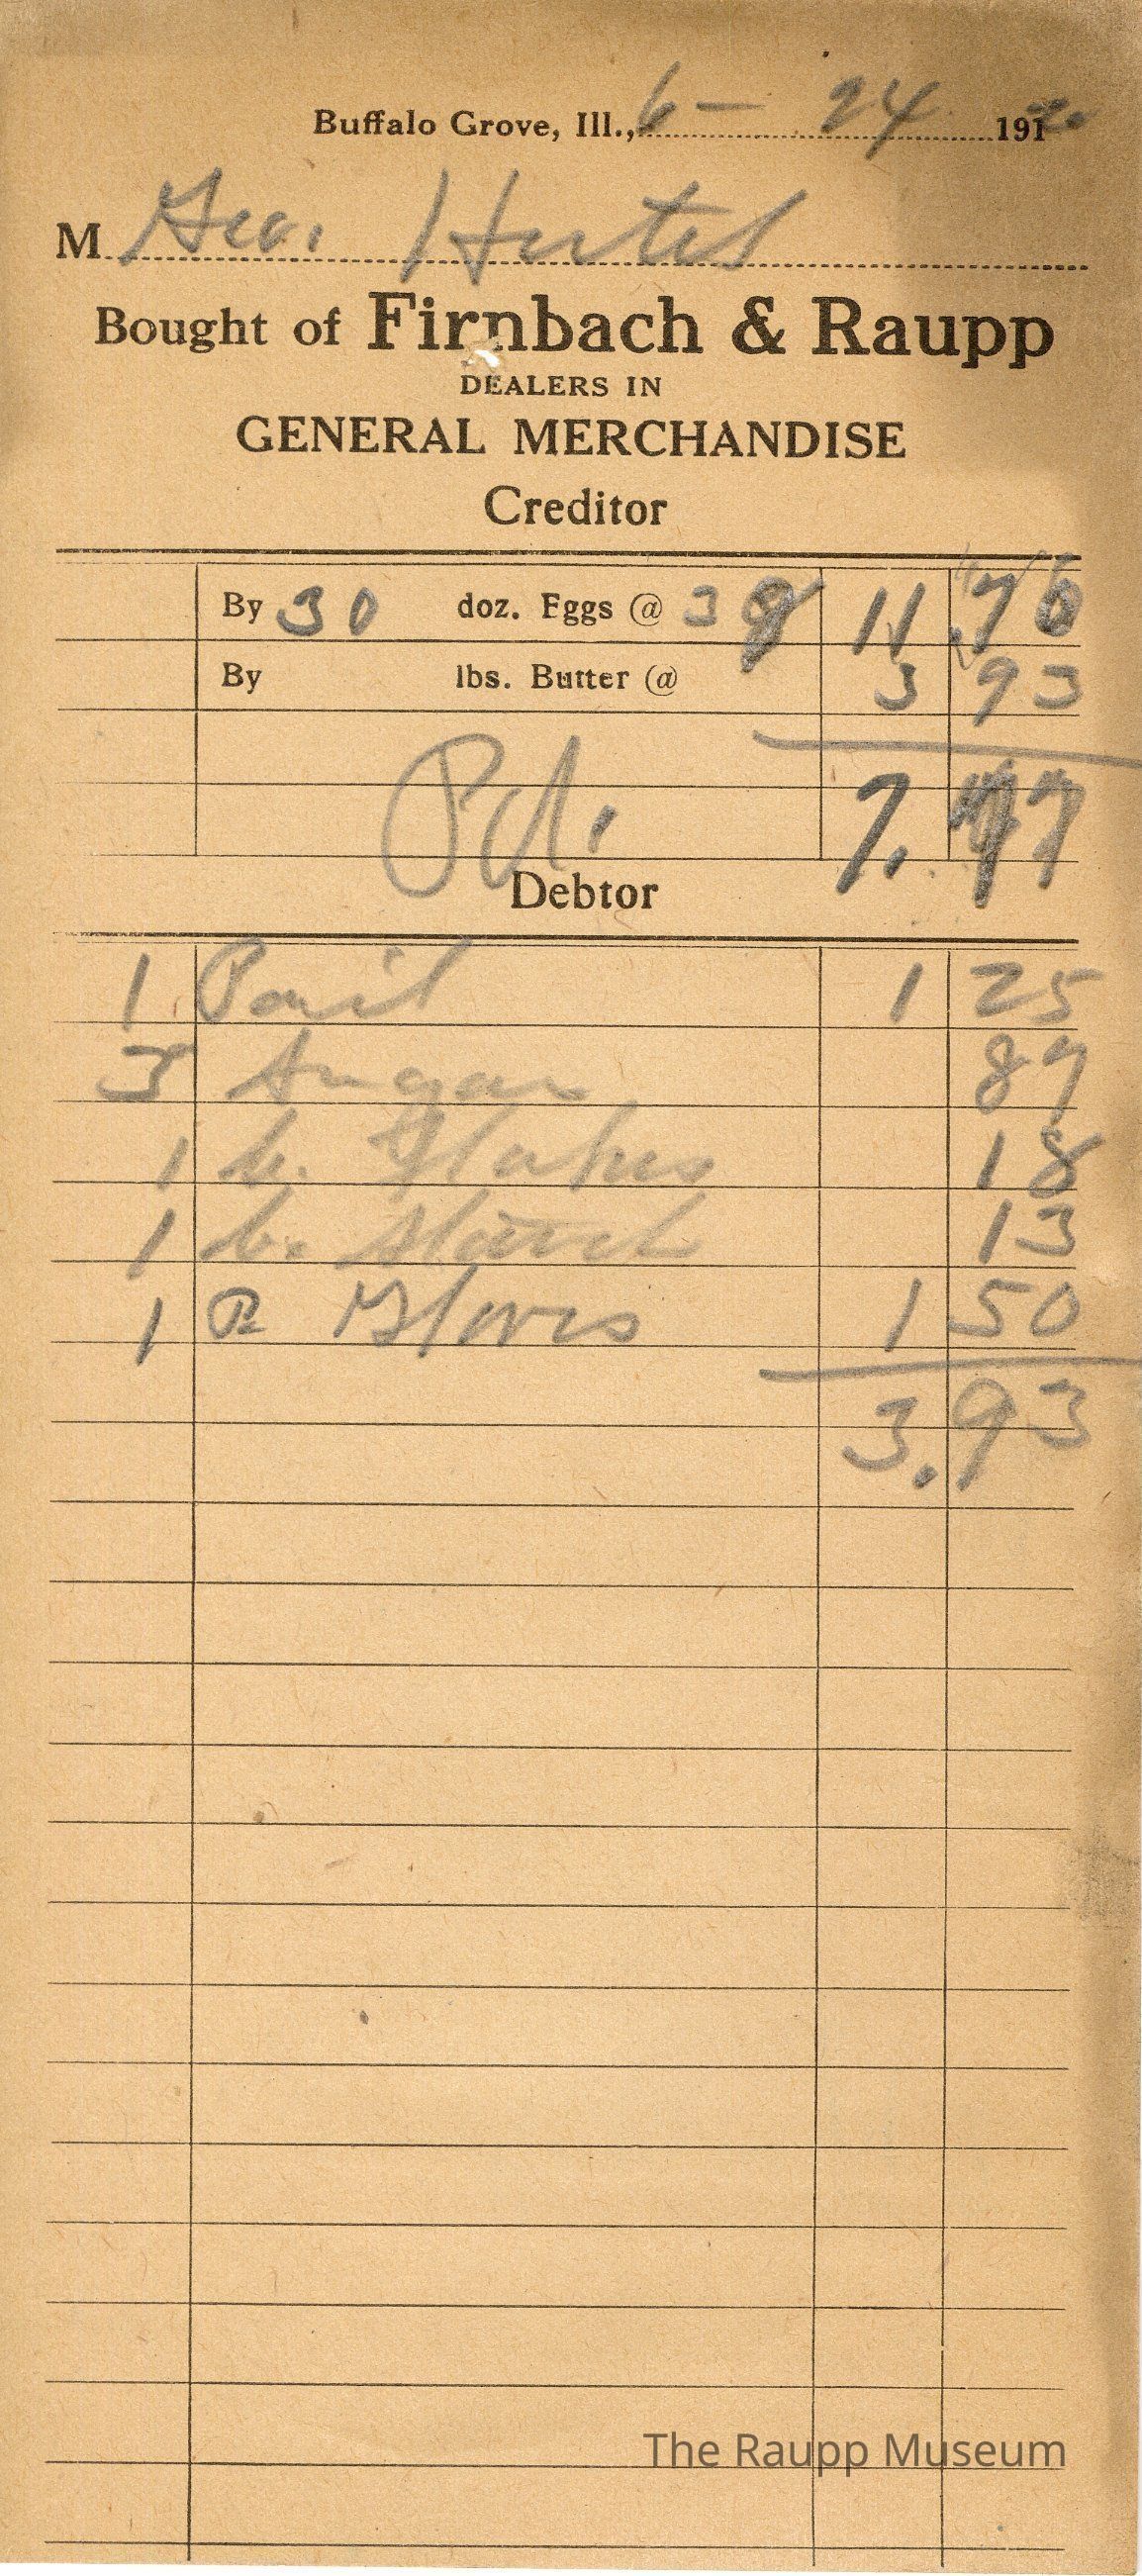 Buffalo Grove, Ill., 6 - 24 191
M Geo. Hertel
Bought of Firnbach & Raupp
DEALERS IN
GENERAL MERCHANDISE
Creditor
By 30 doz. Eggs @ 39 11 70
By lbs. Butter @ 3 93
Pd. 7.77
Debtor
1 Pail 1 25
3 Sugar 87
1 b. Flakes 18
1 b. Starch 13
1 P. Gloves 1 50
3.93
The Raupp Museum